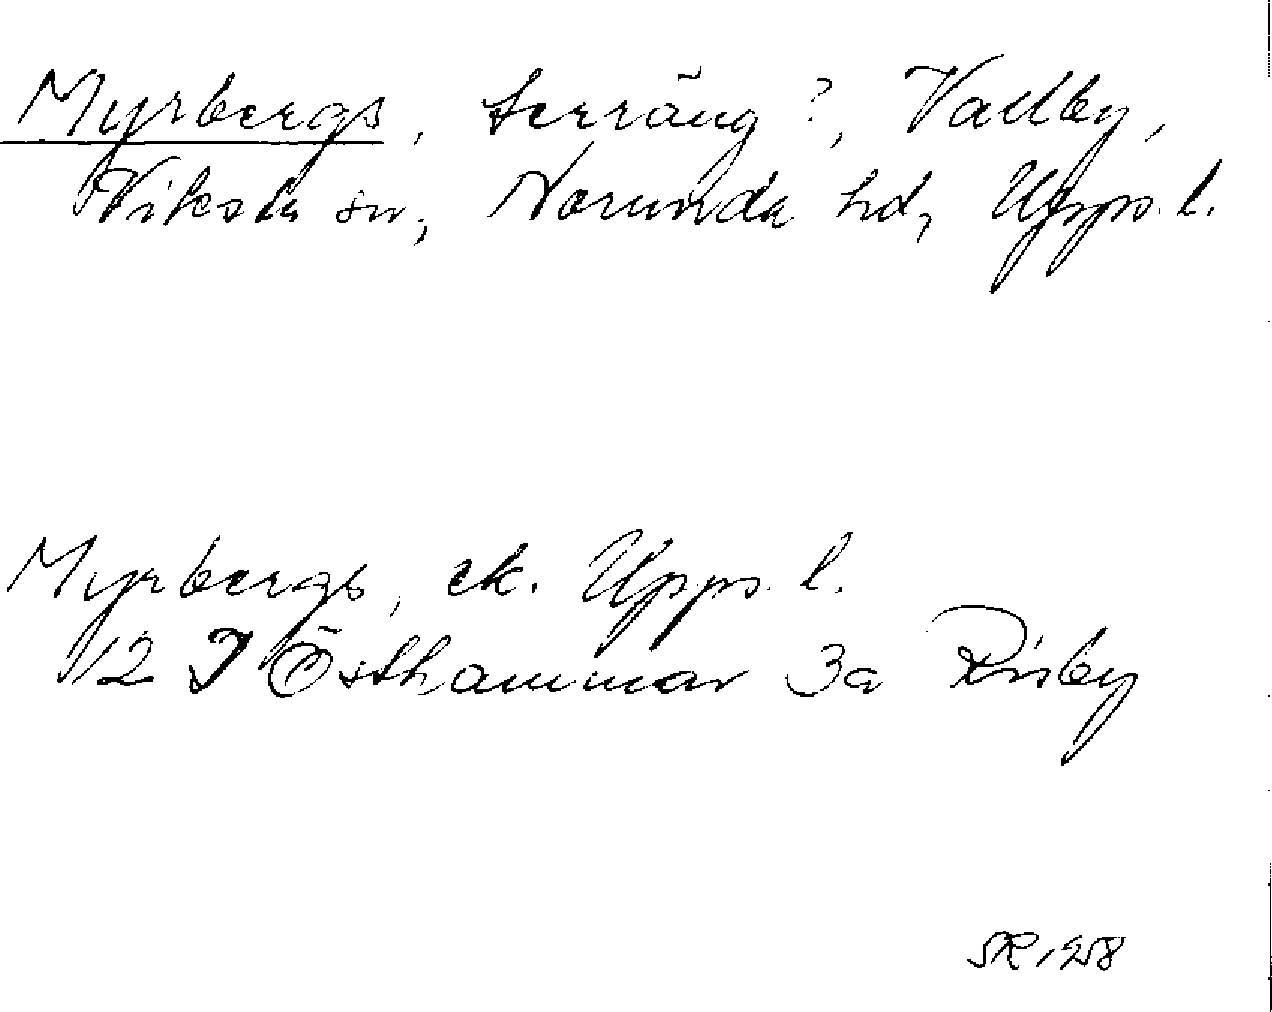 Myrbergs, terräng?, Vallby,
Viksta sn, Norunda hd, Upps. l.
Myrbergs, ek. Upps. l.
12 I Östhammar 3a Risby